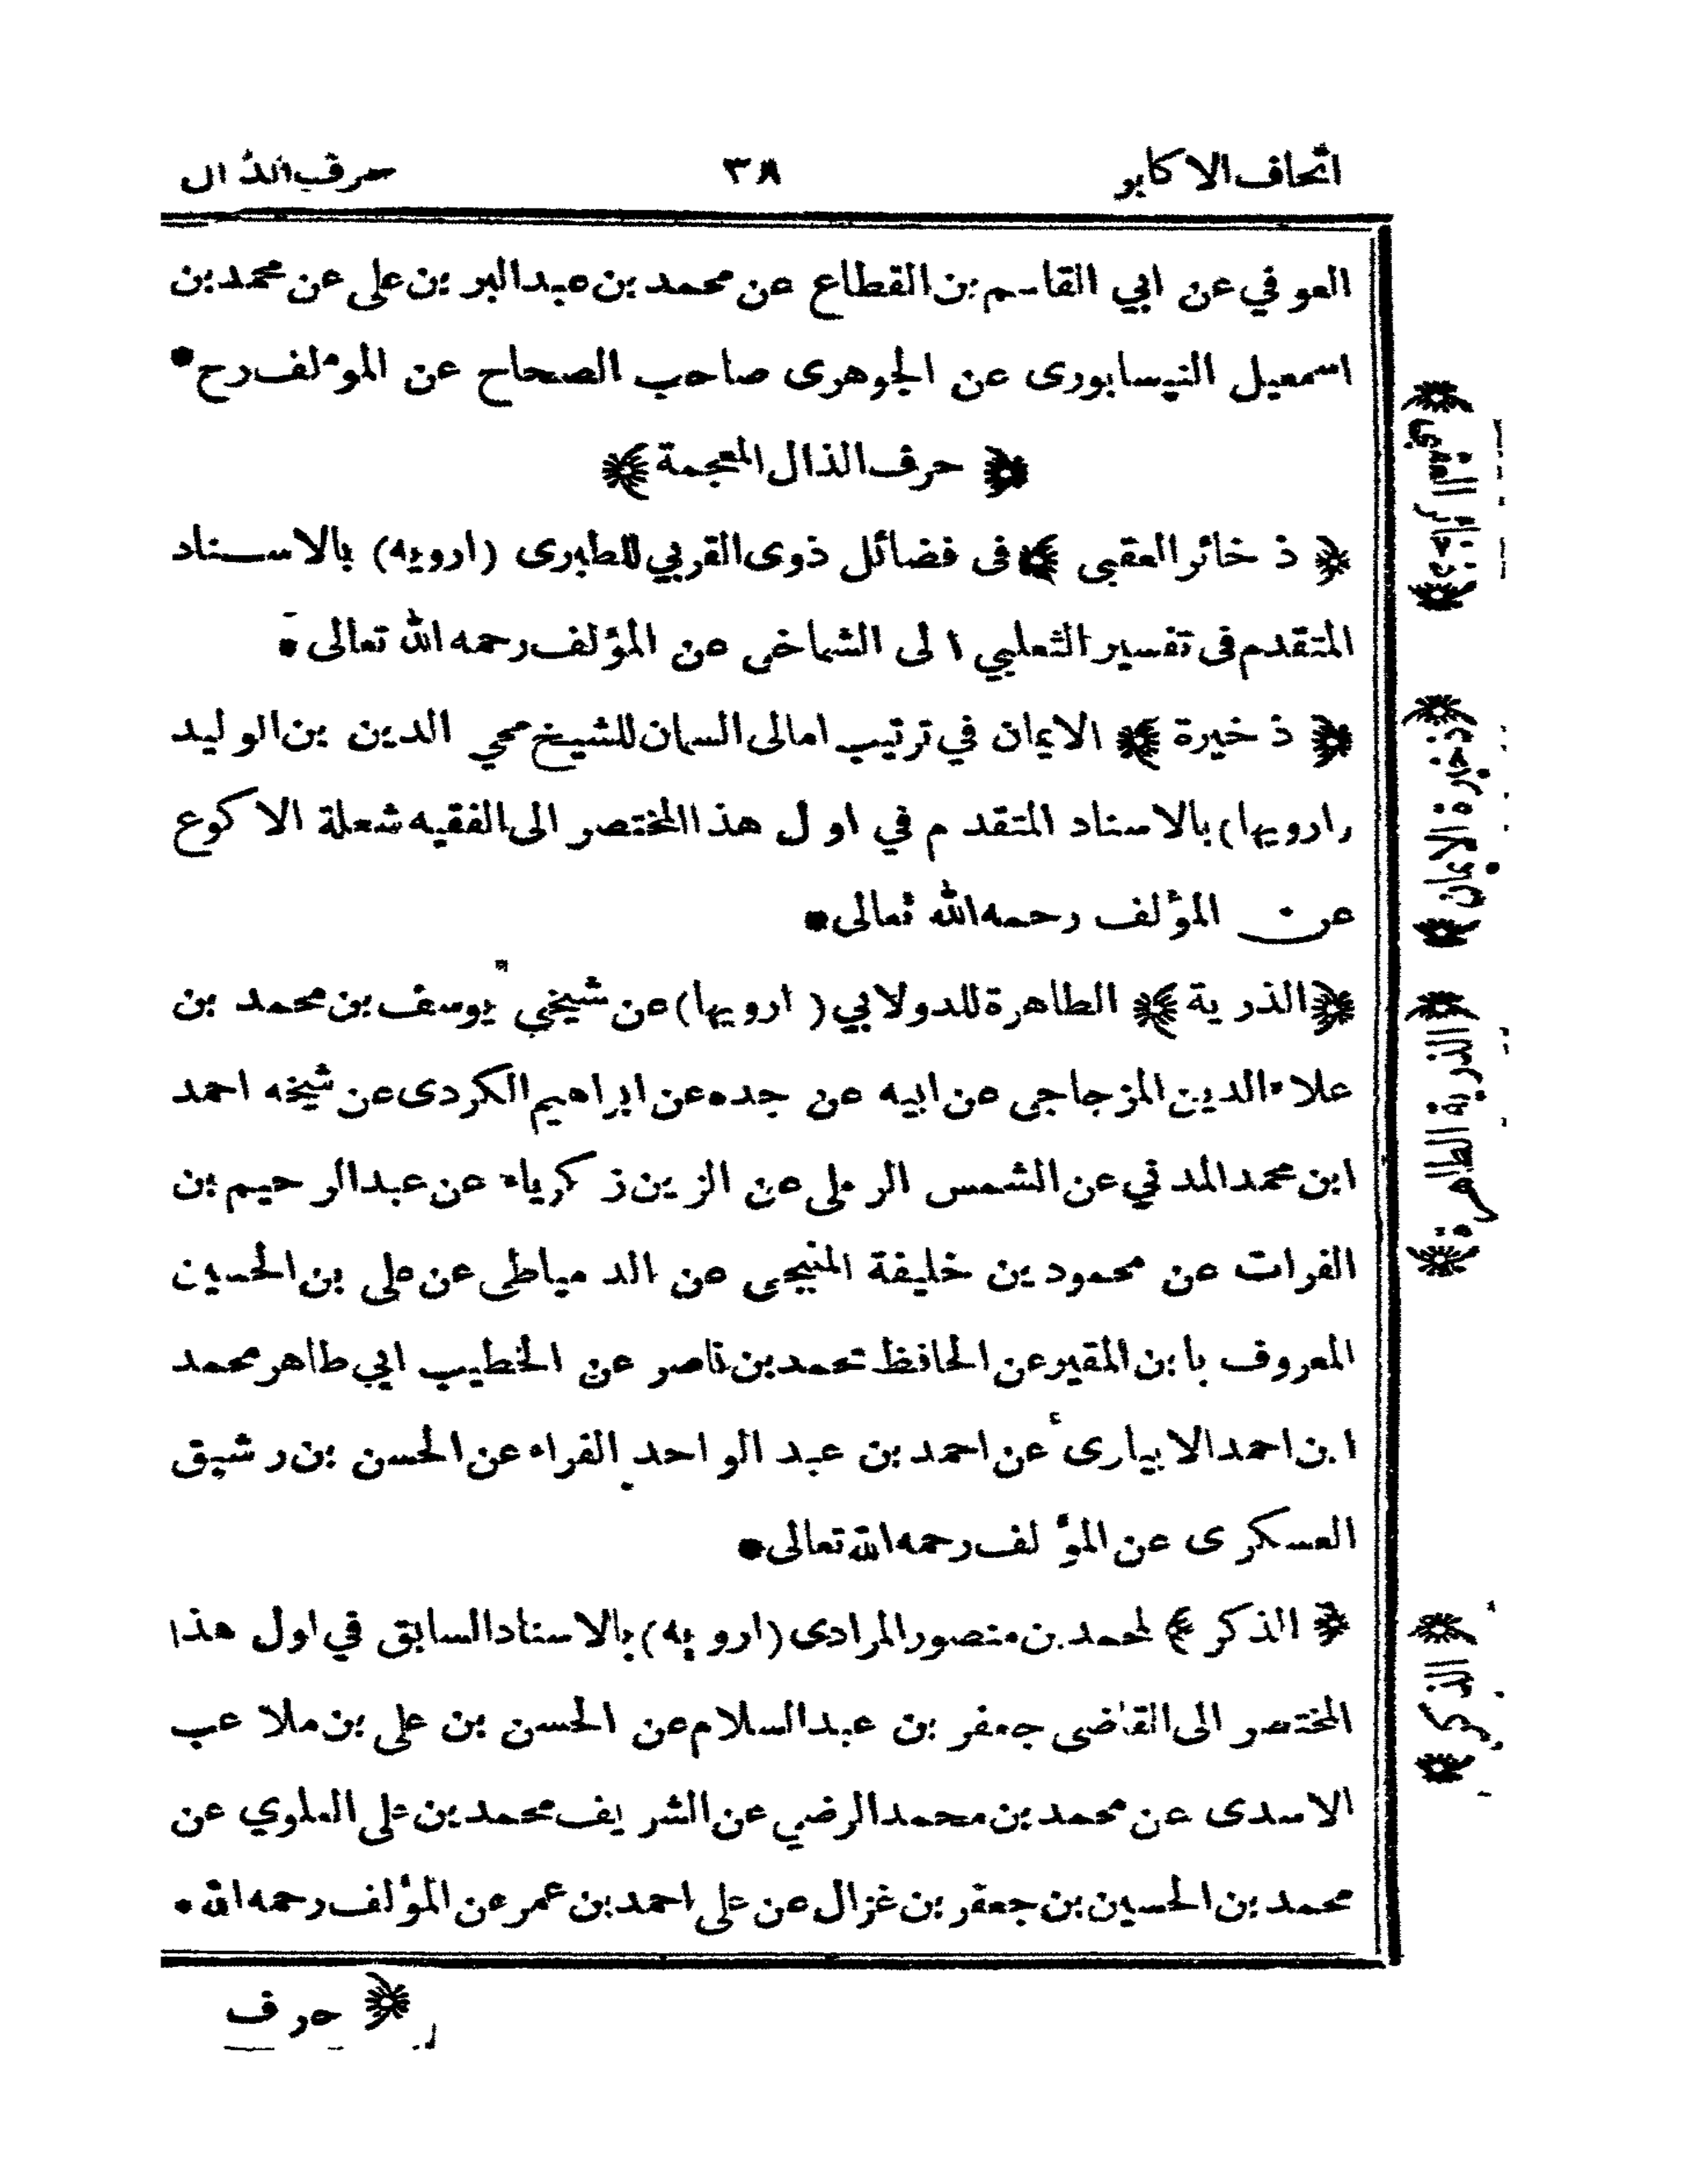 اتحاف الاكابر ٣٨ حرف الذال
العوفي عن ابي القاسم بن القطاع عن محمد بن عبد البر بن على عن محمد بن
اسمعيل النيسابورى عن الجوهرى صاحب الصحاح عن المؤلف رح *
﴿ حرف الذال المعجمة ﴾
﴿ ذخائر العقبى ﴾ فى فضائل ذوى القربي للطبرى (ارويه) بالاسناد
المتقدم فى تفسير الثعلبي الى الشماخى عن المؤلف رحمه الله تعالى *
﴿ ذخيرة ﴾ الايمان في ترتيب امالى السمان للشيخ محي الدين بن الوليد
(ارويها) بالاسناد المتقدم في اول هذا المختصر الى الفقيه شعلة الاكوع
عن المؤلف رحمه الله تعالى *
﴿ الذرية ﴾ الطاهرة للدولابي (ارويها) عن شيخي يوسف بن محمد بن
علاء الدين المزجاجى عن ابيه عن جده عن ابراهيم الكردى عن شيخه احمد
ابن محمد المدني عن الشمس الرملى عن الزين زكرياء عن عبد الرحيم بن
الفرات عن محمود بن خليفة المنبجى عن الدمياطى عن على بن الحسين
المعروف بابن المقير عن الحافظ محمد بن ناصر عن الخطيب ابي طاهر محمد
ابن احمد الابيارى عن احمد بن عبد الواحد الفراء عن الحسن بن رشيق
العسكرى عن المؤلف رحمه الله تعالى *
﴿ الذكر ﴾ لمحمد بن منصور المرادى (ارويه) بالاسناد السابق في اول هذا
المختصر الى القاضى جعفر بن عبد السلام عن الحسن بن على بن ملاعب
الاسدى عن محمد بن محمد الرضي عن الشريف محمد بن على العلوي عن
محمد بن الحسين بن جعفر بن غزال عن على احمد بن عمر عن المؤلف رحمه الله *
﴿ ذخائر العقبي ﴾
﴿ ذخيرة الايمان ﴾
﴿ الذرية الطاهرة ﴾
﴿ الذكر ﴾
﴿ حرف